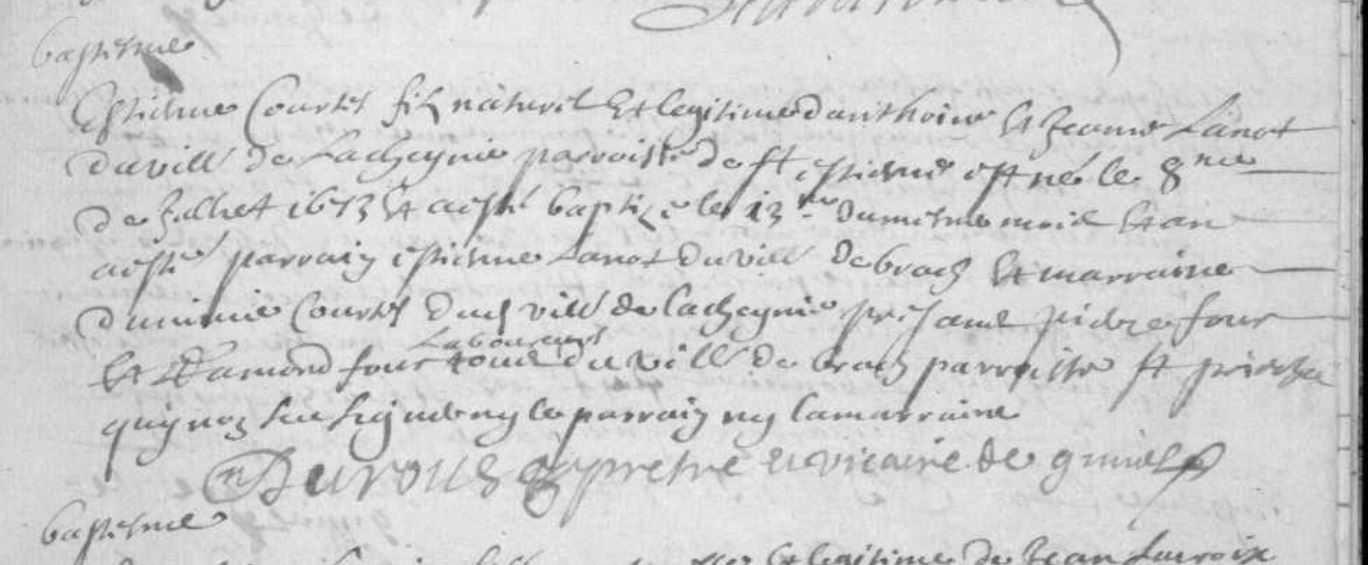 baptesme
Estienne Courtes filz naturel et legitime d'anthoine et Jeanne Lanot
du vill de Lacheynie parroisse de st estienne est né le 8me
de Julhet 1673 et a esté baptizé le 13me du mesme mois et an
a esté parrain estienne Lanot du vill de brach et marraine
Courtes dud vill de lacheynie presans pierre four
et Ramond four Laboureurs tous du vill de brach parroisse st
quy nont sceu signer ny le parrain ny la marraine
Duroux pretre et vicaire de
baptesme
et legitime de Jean Lacroix